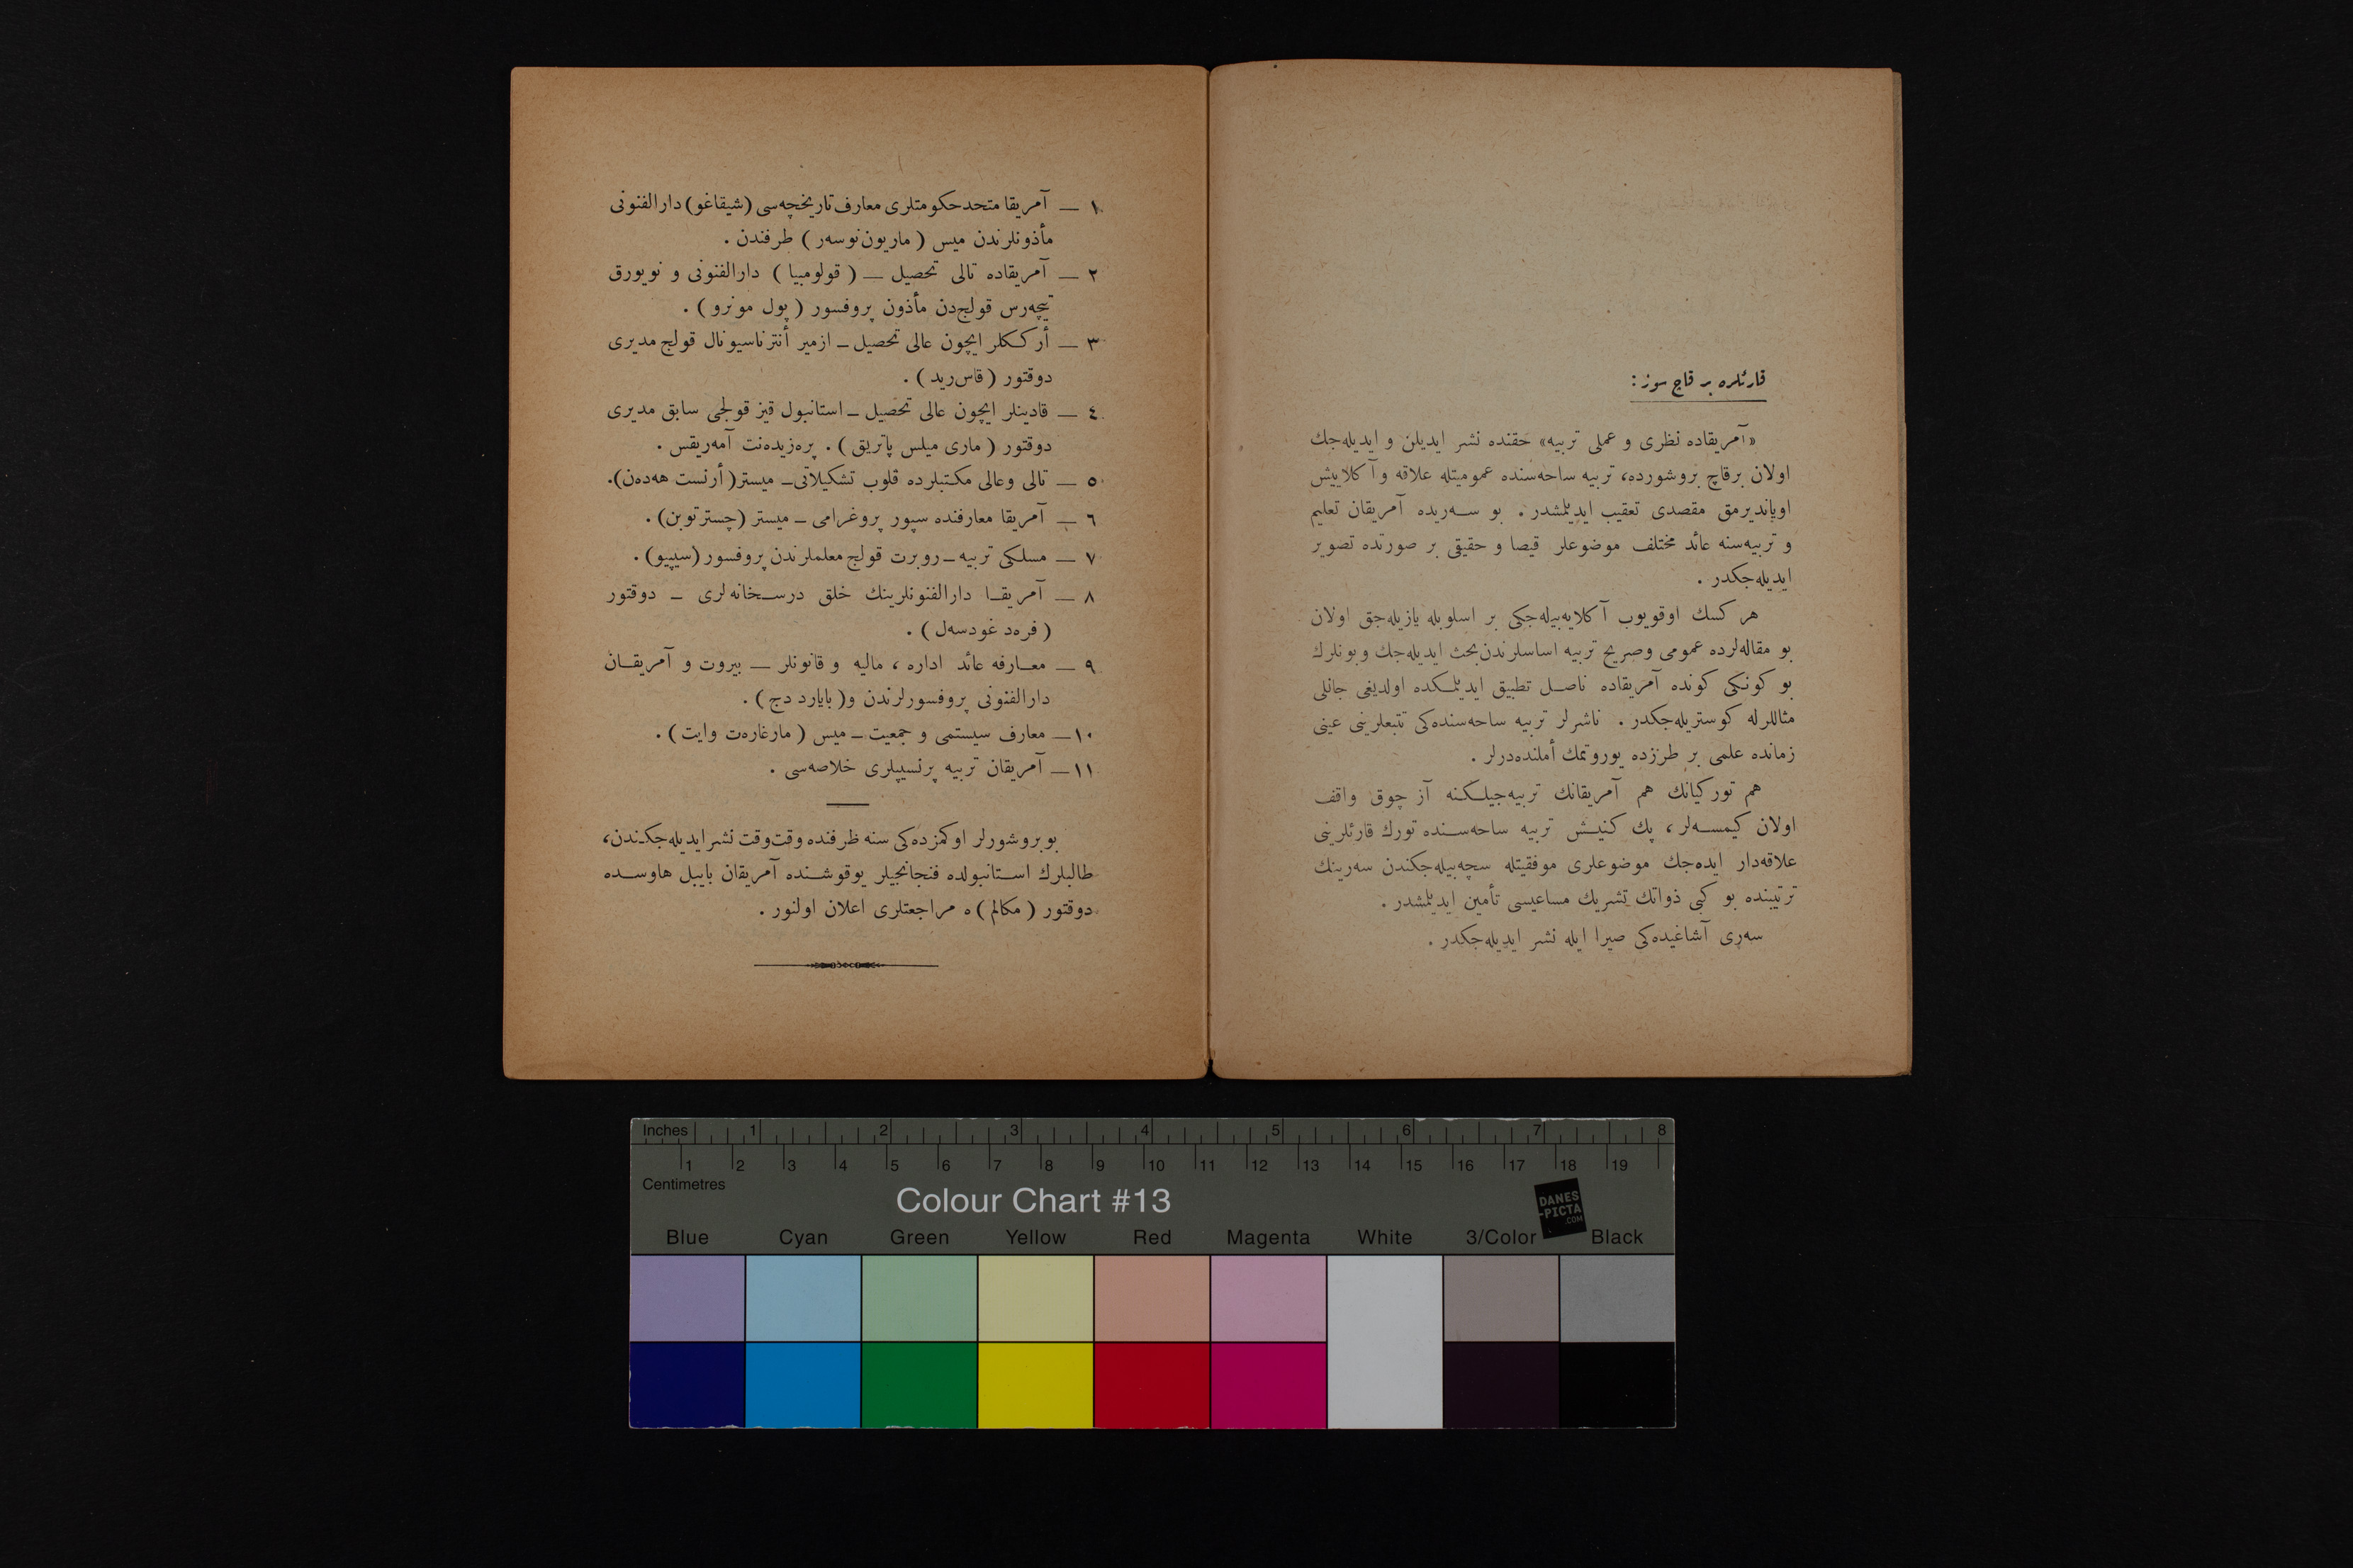 قارئلره بر قاچ سوز :
«آمریقاده نظری و عملی تربیه» حقنده نشر ایدیلن و ایدیله‌جك
اولان برقاچ بروشورده، تربیه ساحه‌سنده عمومیتله علاقه و آكلاییش
اویاندیرمق مقصدی تعقیب ایدیلمشدر . بو سه‌ریده آمریقان تعلیم
و تربیه‌سنه عائد مختلف موضوعلر قیصا و حقیقی بر صورتده تصویر
ایدیله‌جكدر .
هر كسك اوقویوب آكلایه‌بیله‌جكی بر اسلوبله یازیله‌جق اولان
بو مقاله‌لرده عمومی وصریح تربیه اساسلرندن بحث ایدیله‌جك وبونلرك
بو كونكی كونده آمریقاده ناصل تطبیق ایدیلمكده اولدیغی جانلی
مثاللرله كوستریله‌جكدر . ناشرلر تربیه ساحه‌سنده‌كی تتبعلرینی عینی
زمانده علمی بر طرزده یوروتمك أملنده‌درلر .
هم توركیانك هم آمریقانك تربیه‌جیلكنه آز چوق واقف
اولان كیمسه‌لر ، پك كنیش تربیه ساحه‌سنده تورك قارئلرینی
علاقه‌دار ایده‌جك موضوعلری موفقیتله سچه‌بیله‌جكندن سه‌رینك
ترتیبنده بو كبی ذواتك تشریك مساعیسی تأمین ایدیلمشدر .
سه‌ری آشاغیده‌كی صیرا ایله نشر ایدیله‌جكدر .
١ — آمریقا متحد حكومتلری معارف تاریخچه‌سی (شیقاغو) دارالفنونی
مأذونلرندن میس ( ماریون نوسه‌ر ) طرفندن .
٢ — آمریقاده تالی تحصیل — ( قولومبیا ) دارالفنونی و نویورق
تیچه‌رس قولج‌دن مأذون پروفسور ( پول مونرو ) .
٣ — أرككلر ایچون عالی تحصیل — ازمیر أنترناسیونال قولج مدیری
دوقتور ( قاس رید ) .
٤ — قادینلر ایچون عالی تحصیل — استانبول قیز قولجی سابق مدیری
دوقتور ( ماری میلس پاتریق ) . پره‌زیده‌نت آمه‌ریقس .
٥ — تالی وعالی مكتبلرده قلوب تشكیلاتی — میستر ( أرنست هه‌ده‌ن ).
٦ — آمریقا معارفنده سپور پروغرامی — میستر (چستر توبن) .
٧ — مسلكی تربیه — روبرت قولج معلملرندن پروفسور (سیپیو) .
٨ — آمریقا دارالفنونلرینك خلق درسخانه‌لری — دوقتور
( فره‌د غودسه‌ل ) .
٩ — معارفه عائد اداره ، مالیه و قانونلر — بیروت و آمریقان
دارالفنونی پروفسورلرندن و( بایارد دج ) .
١٠ — معارف سیستمی و جمعیت — میس ( مارغاره‌ت وایت ) .
١١ — آمریقان تربیه پرنسیپلری خلاصه‌سی .
بو بروشورلر اوكمزده‌كی سنه ظرفنده وقت وقت نشر ایدیله‌جكندن،
طالبلرك استانبولده فنجانجیلر یوقوشنده آمریقان بایبل هاوسده
دوقتور ( مكالم ) ه مراجعتلری اعلان اولنور .
Inches 1 2 3 4 5 6 7 8
1 2 3 4 5 6 7 8 9 10 11 12 13 14 15 16 17 18 19
Centimetres
Colour Chart #13
DANES
-PICTA
.COM
Blue Cyan Green Yellow Red Magenta White 3/Color Black